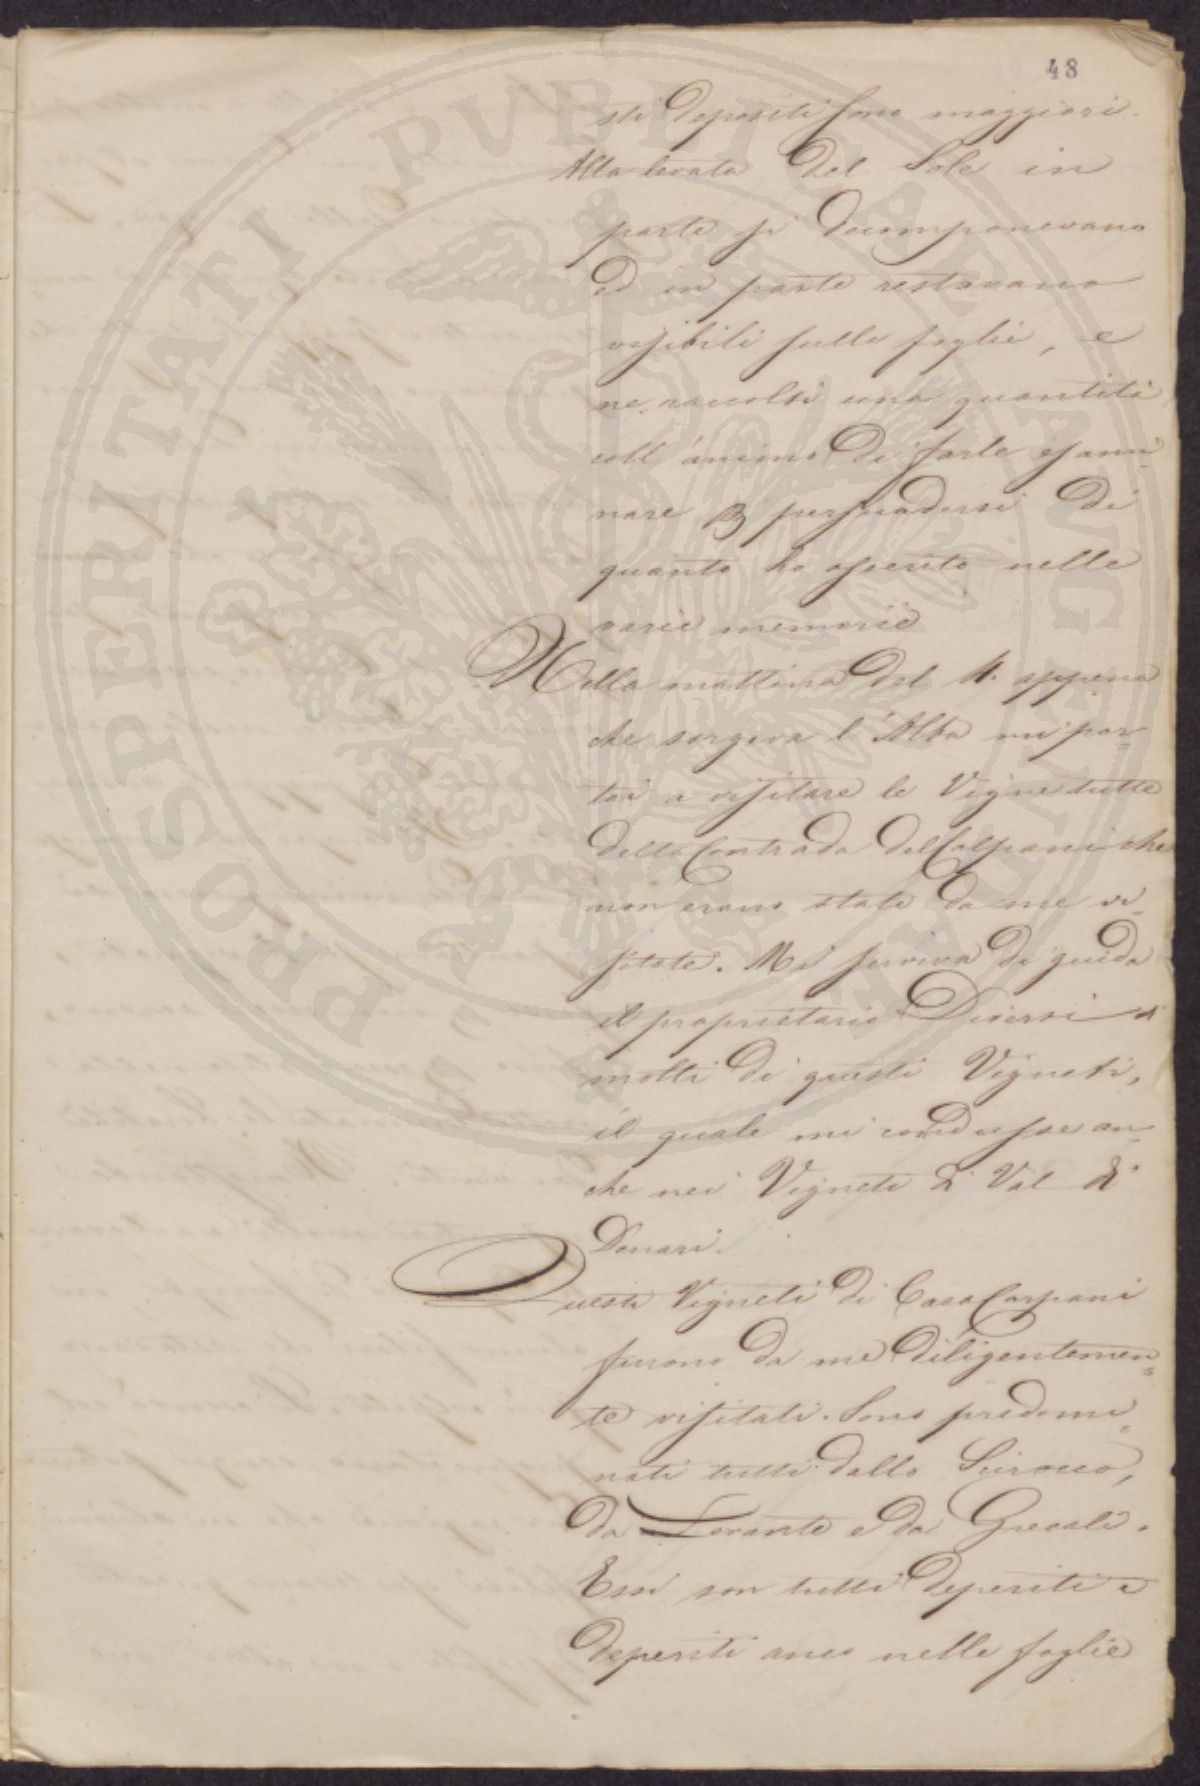 48
sti depositi sono maggiori.
Alla levata del Sole in
parte si decomponevano
ed in parte restavano
visibili sulle foglie, e
ne raccolsi una quantità
coll'animo di farle esami-
nare per persuadersi di
quanto ho asserito nelle
varie memorie
Nella mattina del 4. appena
che sorgeva l'Alba mi por=
tai a visitare le Vigne tutte
della Contrada del Calpani che
non erano state da me vi-
sitate. Mi serviva di guida
il proprietario Diversi di
molti di questi Vigneti,
il quale mi condusse an-
che nei Vigneti di Val di
Donari.
Questi Vigneti di Casa Carpani
furono da me diligentemen=
te visitati. Sono predomi=
nati tutti dallo Scirocco,
da Levante e da Grecali.
Essi son tutti deperiti e
deperiti anco nelle foglie
PROSPERITATI PVBLICAE AVGENDAE